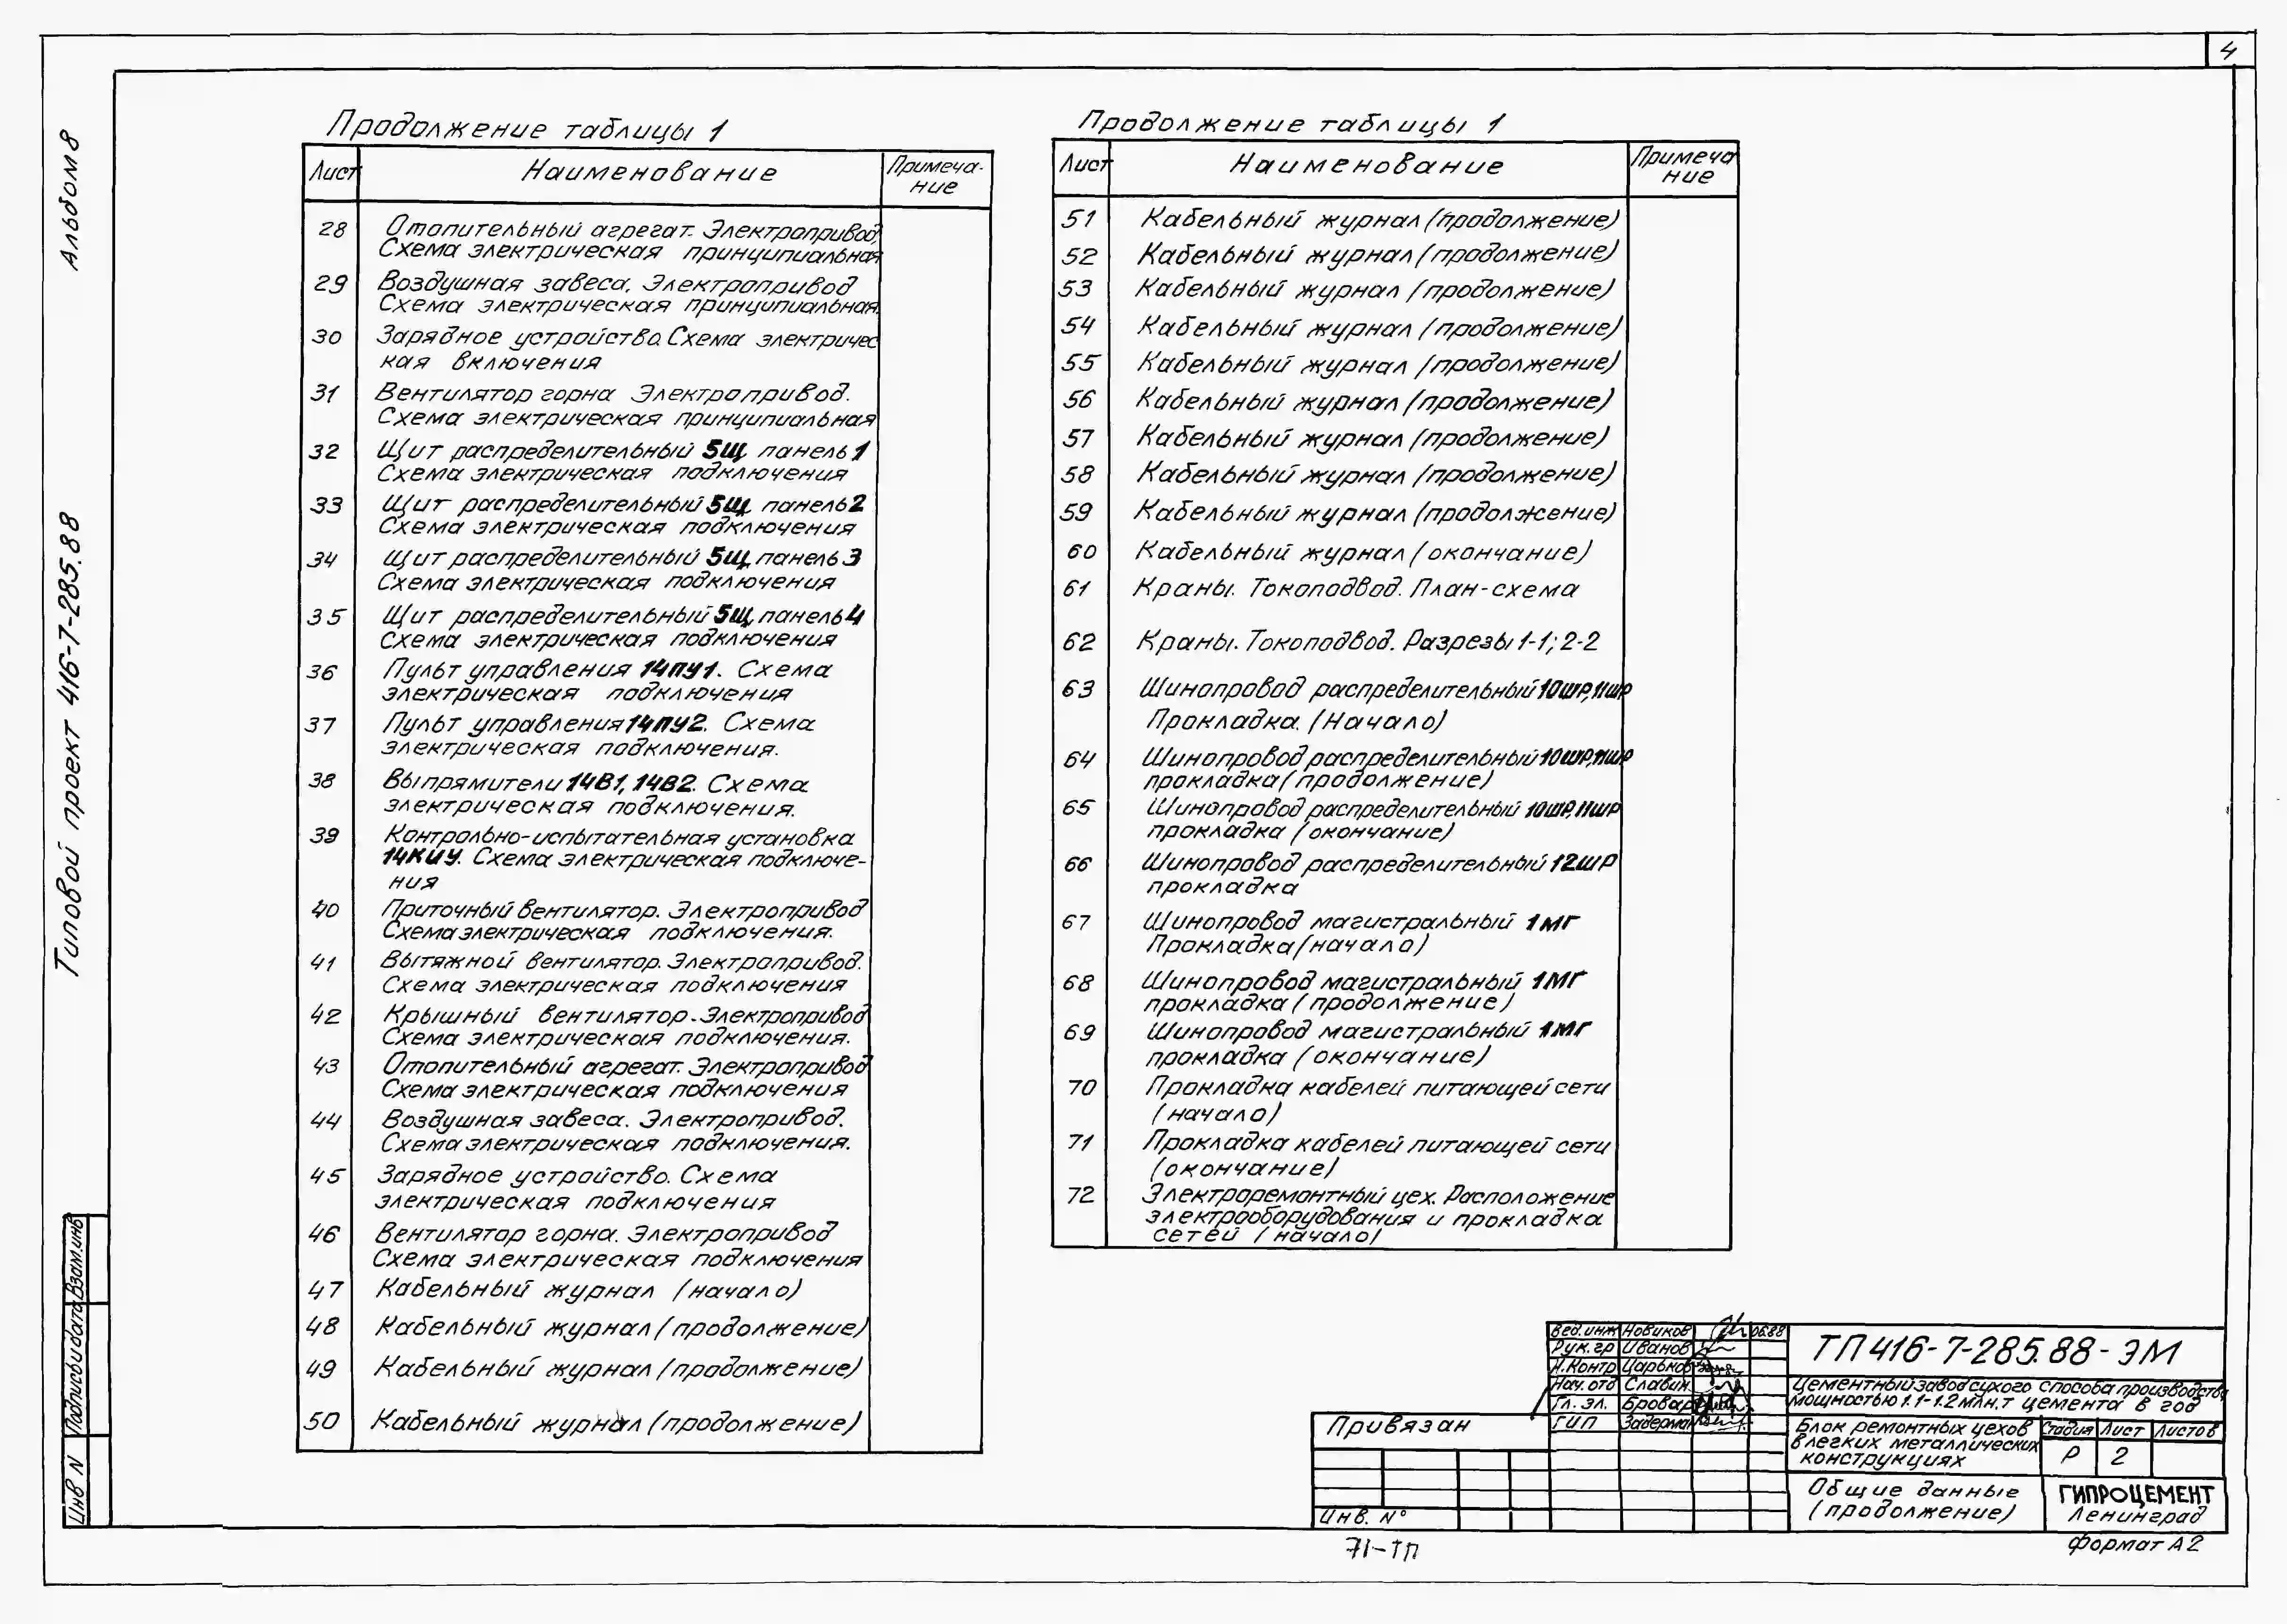 4
Альбом 8
Типовой проект 416-7-285.88
Продолжение таблицы 1
Лист Наименование Примеча-
ние
28 Отопительный агрегат. Электропривод,
Схема электрическая принципиальная
29 Воздушная завеса. Электропривод
Схема электрическая принципиальная.
30 Зарядное устройство. Схема электричес
кая включения
31 Вентилятор горна Электропривод.
Схема электрическая принципиальная
32 Щит распределительный 5Щ, панель 1
Схема электрическая подключения
33 Щит распределительный 5Щ, панель 2
Схема электрическая подключения
34 Щит распределительный 5Щ, панель 3
Схема электрическая подключения
35 Щит распределительный 5Щ, панель 4
Схема электрическая подключения
36 Пульт управления 14ПУ1. Схема
электрическая подключения
37 Пульт управления 14ПУ2. Схема
электрическая подключения.
38 Выпрямители 14В1, 14В2. Схема
электрическая подключения.
39 Контрольно-испытательная установка
14КИУ. Схема электрическая подключе-
ния
40 Приточный вентилятор. Электропривод
Схема электрическая подключения.
41 Вытяжной вентилятор. Электропривод.
Схема электрическая подключения
42 Крышный вентилятор. Электропривод
Схема электрическая подключения.
43 Отопительный агрегат. Электропривод
Схема электрическая подключения
44 Воздушная завеса. Электропривод.
Схема электрическая подключения.
45 Зарядное устройство. Схема
электрическая подключения
46 Вентилятор горна. Электропривод
Схема электрическая подключения
47 Кабельный журнал (начало)
48 Кабельный журнал (продолжение)
49 Кабельный журнал (продолжение)
50 Кабельный журнал (продолжение)
Продолжение таблицы 1
Лист Наименование Примеча
ние
51 Кабельный журнал (продолжение)
52 Кабельный журнал (продолжение)
53 Кабельный журнал (продолжение)
54 Кабельный журнал (продолжение)
55 Кабельный журнал (продолжение)
56 Кабельный журнал (продолжение)
57 Кабельный журнал (продолжение)
58 Кабельный журнал (продолжение)
59 Кабельный журнал (продолжение)
60 Кабельный журнал (окончание)
61 Краны. Токоподвод. План-схема
62 Краны. Токоподвод. Разрезы 1-1; 2-2
63 Шинопровод распределительный 10ШР, 11ШР
Прокладка. (Начало)
64 Шинопровод распределительный 10ШР, 11ШР
прокладка (продолжение)
65 Шинопровод распределительный 10ШР, 11ШР
прокладка (окончание)
66 Шинопровод распределительный 12ШР
прокладка
67 Шинопровод магистральный 1МГ
Прокладка (начало)
68 Шинопровод магистральный 1МГ
прокладка (продолжение)
69 Шинопровод магистральный 1МГ
прокладка (окончание)
70 Прокладка кабелей питающей сети
(начало)
71 Прокладка кабелей питающей сети
(окончание)
72 Электроремонтный цех. Расположение
электрооборудования и прокладка
сетей (начало)
Взам.инв
Подпись и дата
Инв N
Привязан
Инв. N°
Вед.инж Новиков 06.88
Рук.гр Иванов
Н.Контр Царьков
Нач. отд Славин
Гл. эл. Бровар
ГИП Задерман
ТП 416-7-285.88-ЭМ
Цементный завод сухого способа производства
мощностью 1.1-1.2 млн.т цемента в год
Блок ремонтных цехов
в легких металлических
конструкциях
Стадия Лист Листов
Р 2
Общие данные
(продолжение)
ГИПРОЦЕМЕНТ
Ленинград
71-ТП
Формат А2